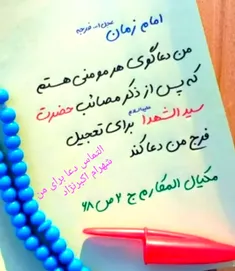 امام زمان عجل الله فرجه
من دعاگوی هر مومنی هستم
که پس از ذکر مصائب حضرت
سیدالشهدا علیه السلام برای تعجیل
فرج من دعا کند
مکیال المکارم ج ۲ ص ۶۸
التماس دعا برای من
شهرام اکبرنژاد